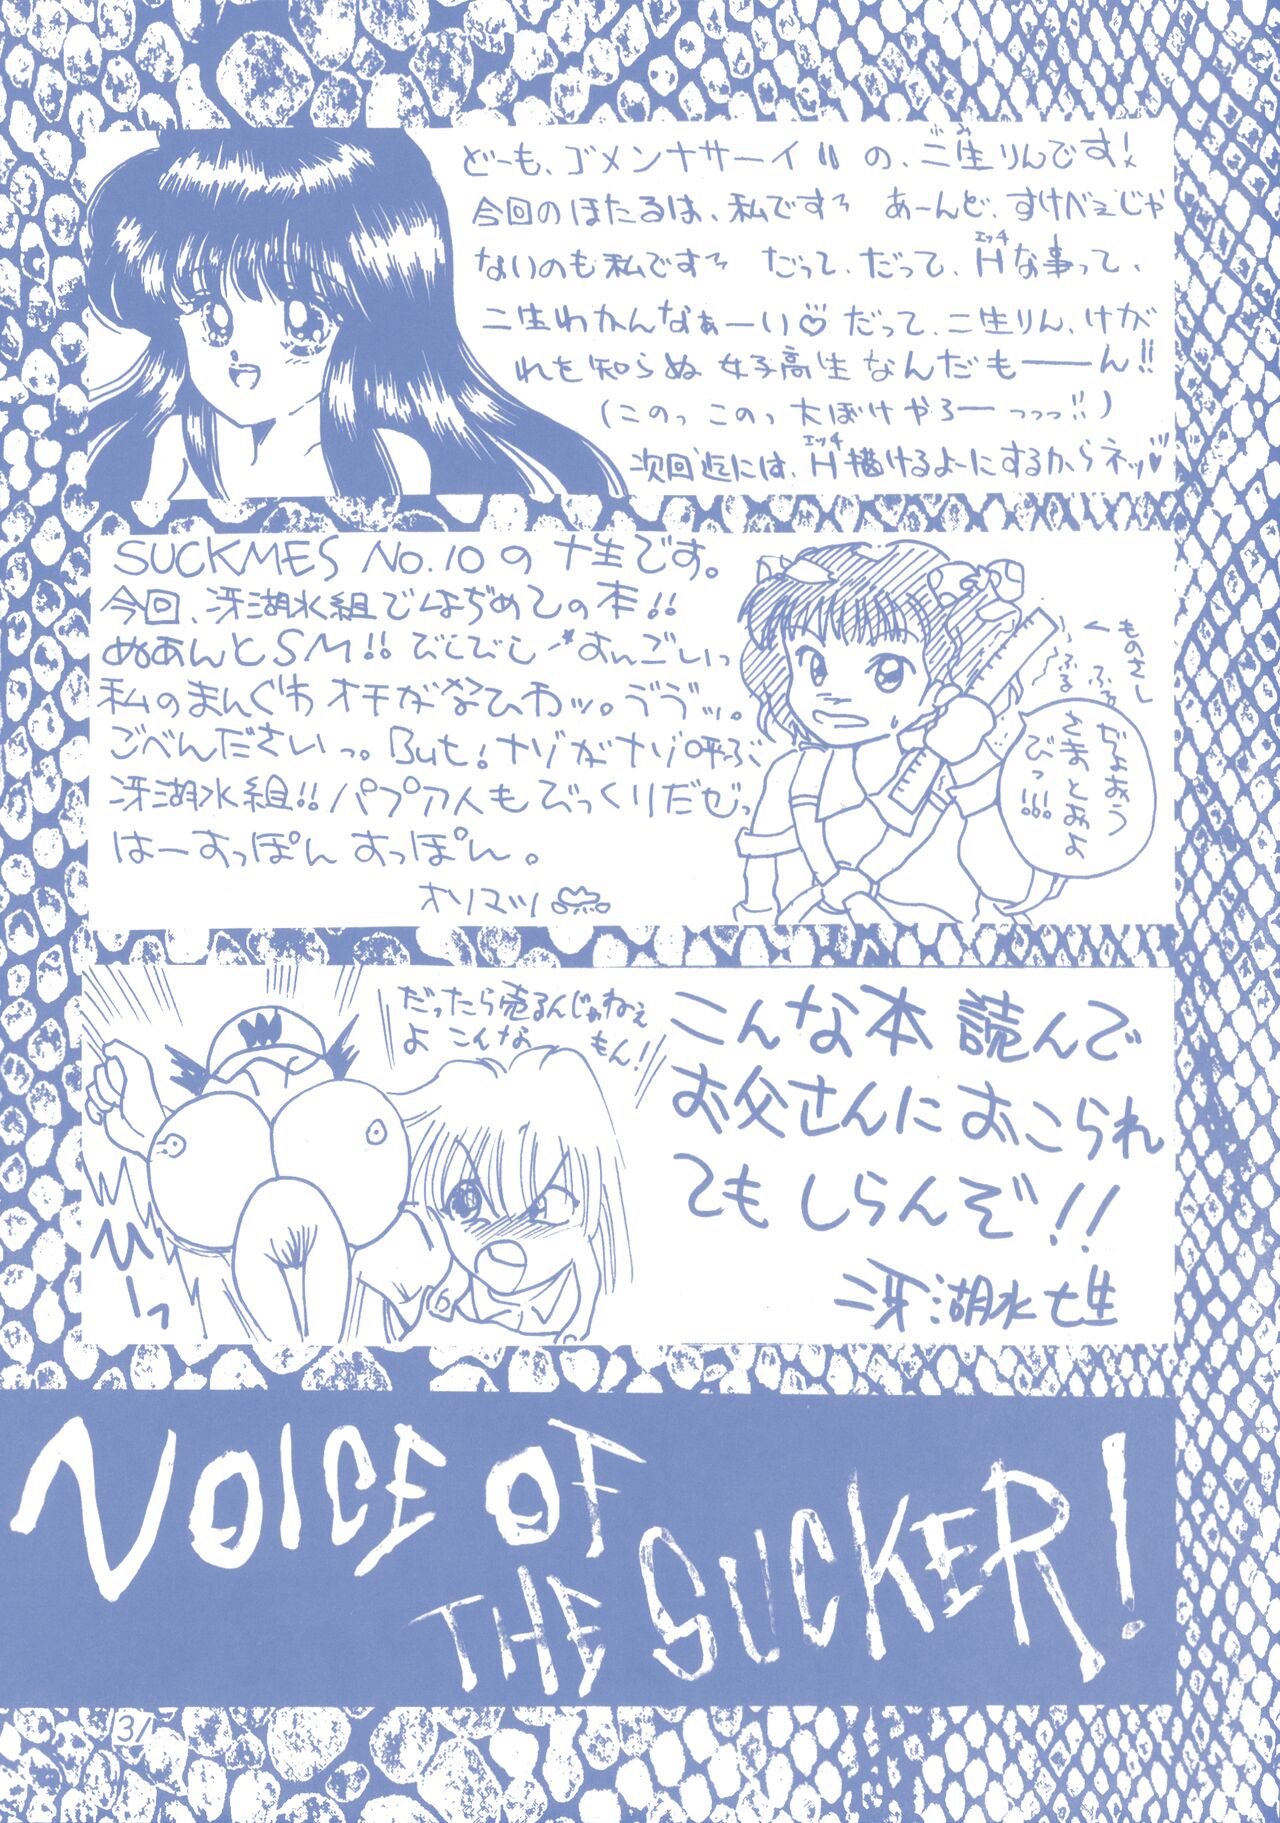 どーも、ゴメンナサーイ!!の、二生りんです!
今回のほたるは、私ですぅ あーんど、すけべぇじゃ
ないのも私ですぅ だって、だって、Hな事って、
エッチ
二生わかんなぁーい♡だって、二生りん、けが
れを知らぬ 女子高生なんだもーーん!!
(このっ このっ 大ぼけやろーっっっ!!)
エッチ
次回迄には、H描けるよーにするからネッ♥
SUCKMES No.10の 十生です。
今回、冴湖水組ではぢめての本!!
ぬぁんとSM!! びしびし すんごしいっ
私のまんぐわ オチがなひわッ。ううッ。
ごべんださいっ。But!ナゾがナゾ呼ぶ
冴湖水組!!パプア人もびっくりだぜっ
はーすっぽん すっぽん。
オソマツ
ものさし
ふるふる
だぁおぅ
さまとあよ
びっ!!!
だったら売るんじゃねぇ
よ こんな もん!
こんな本 読んで
お父さんに おこられ
ても しらんぞ!!
冴湖水七生
VOICE OF
THE SUCKER!
31